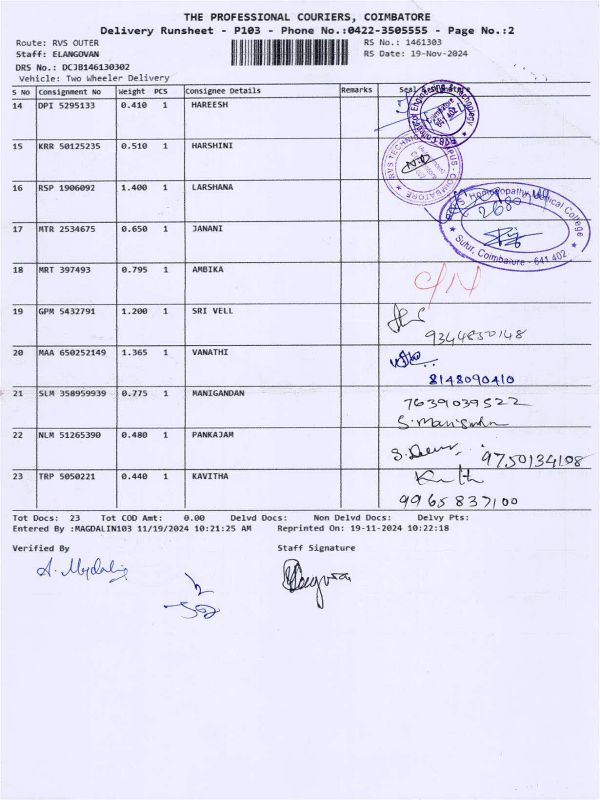 THE PROFESSIONAL COURIERS, COIMBATORE
Delivery Runsheet - P103 - Phone No.:0422-3505555 - Page No.:2
Route: RVS OUTER RS No.: 1461303
Staff: ELANGOVAN RS Date: 19-Nov-2024
DRS No.: DCJB146130302
Vehicle: Two Wheeler Delivery
S No Consignment No Weight PCS Consignee Details Remarks Seal Signature
14 DPI 5295133 0.410 1 HAREESH
15 KRR 50125235 0.510 1 HARSHINI
16 RSP 1906092 1.400 1 LARSHANA
17 MTR 2534675 0.650 1 JANANI
Homoeopathy Medical College
Sulur, Coimbatore - 641 402
18 MRT 397493 0.795 1 AMBIKA
19 GPM 5432791 1.200 1 SRI VELL
9344830148
20 MAA 650252149 1.365 1 VANATHI
8148090410
21 SLM 358959939 0.775 1 MANIGANDAN
7639039522
22 NLM 51265390 0.480 1 PANKAJAM
9750134108
23 TRP 5050221 0.440 1 KAVITHA
9965837100
Tot Docs: 23 Tot COD Amt: 0.00 Delvd Docs: Non Delvd Docs: Delvy Pts:
Entered By :MAGDALIN103 11/19/2024 10:21:25 AM Reprinted On: 19-11-2024 10:22:18
Verified By Staff Signature